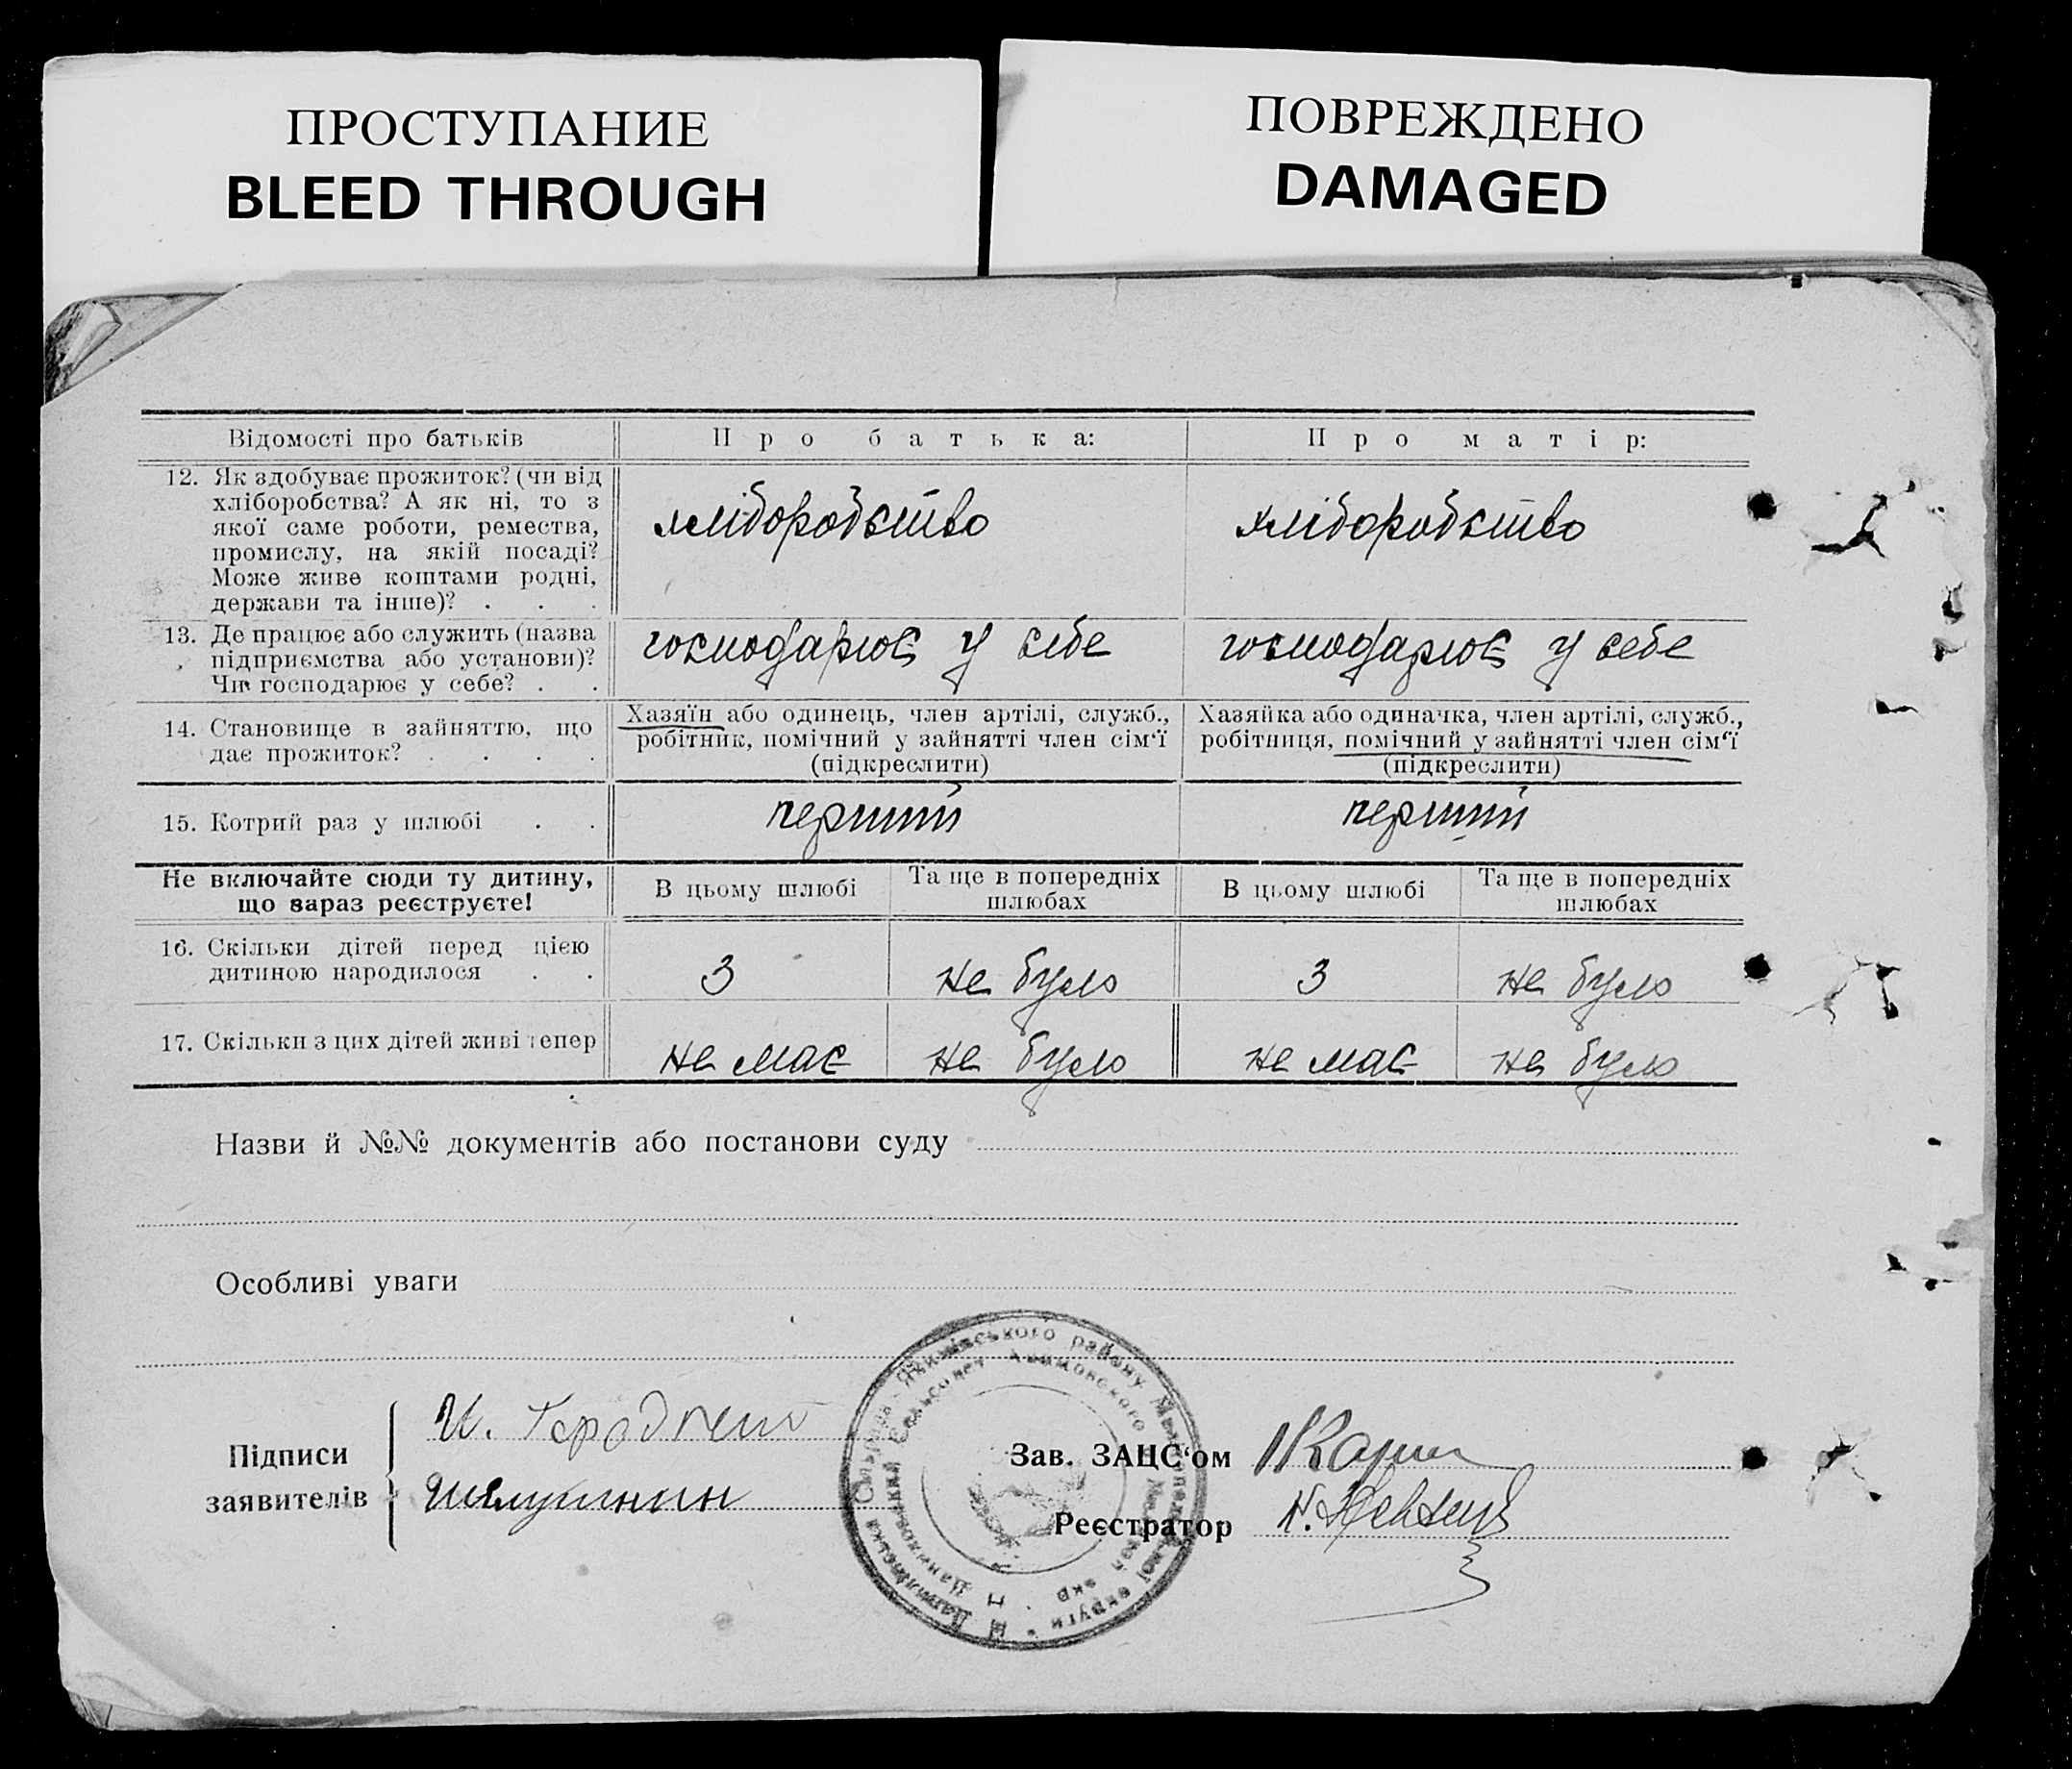 ПРОСТУПАНИЕ
BLEED THROUGH
ПОВРЕЖДЕНО
DAMAGED
Відомості про батьків
Про батька:
Про матір:
12. Як здобуває прожиток? (чи від
хліборобства? А як ні, то з
якої саме роботи, ремества,
промислу, на якій посаді?
Може живе коштами родні,
держави та інше)? . . .
хліборобство
хліборобство
13. Де працює або служить (назва
підприємства або установи)?
Чи господарює у себе? . .
господарює у себе
господарює у себе
14. Становище в зайняттю, що
дає прожиток? . . . .
Хазяїн або одинець, член артілі, служб.,
робітник, помічний у зайнятті член сім‘ї
(підкреслити)
Хазяйка або одиначка, член артілі, служб.,
робітниця, помічний у зайнятті член сім‘ї
(підкреслити)
15. Котрий раз у шлюбі . .
перший
перший
Не включайте сюди ту дитину,
що зараз реєструєте!
В цьому шлюбі
Та ще в попередніх
шлюбах
В цьому шлюбі
Та ще в попередніх
шлюбах
16. Скільки дітей перед цією
дитиною народилося . .
3
не було
3
не було
17. Скільки з цих дітей живі тепер
не має
не було
не має
не було
Назви й №№ документів або постанови суду
Особливі уваги
Підписи
заявителів
И.
Зав. ЗАЦС‘ом
Реєстратор
району
округи